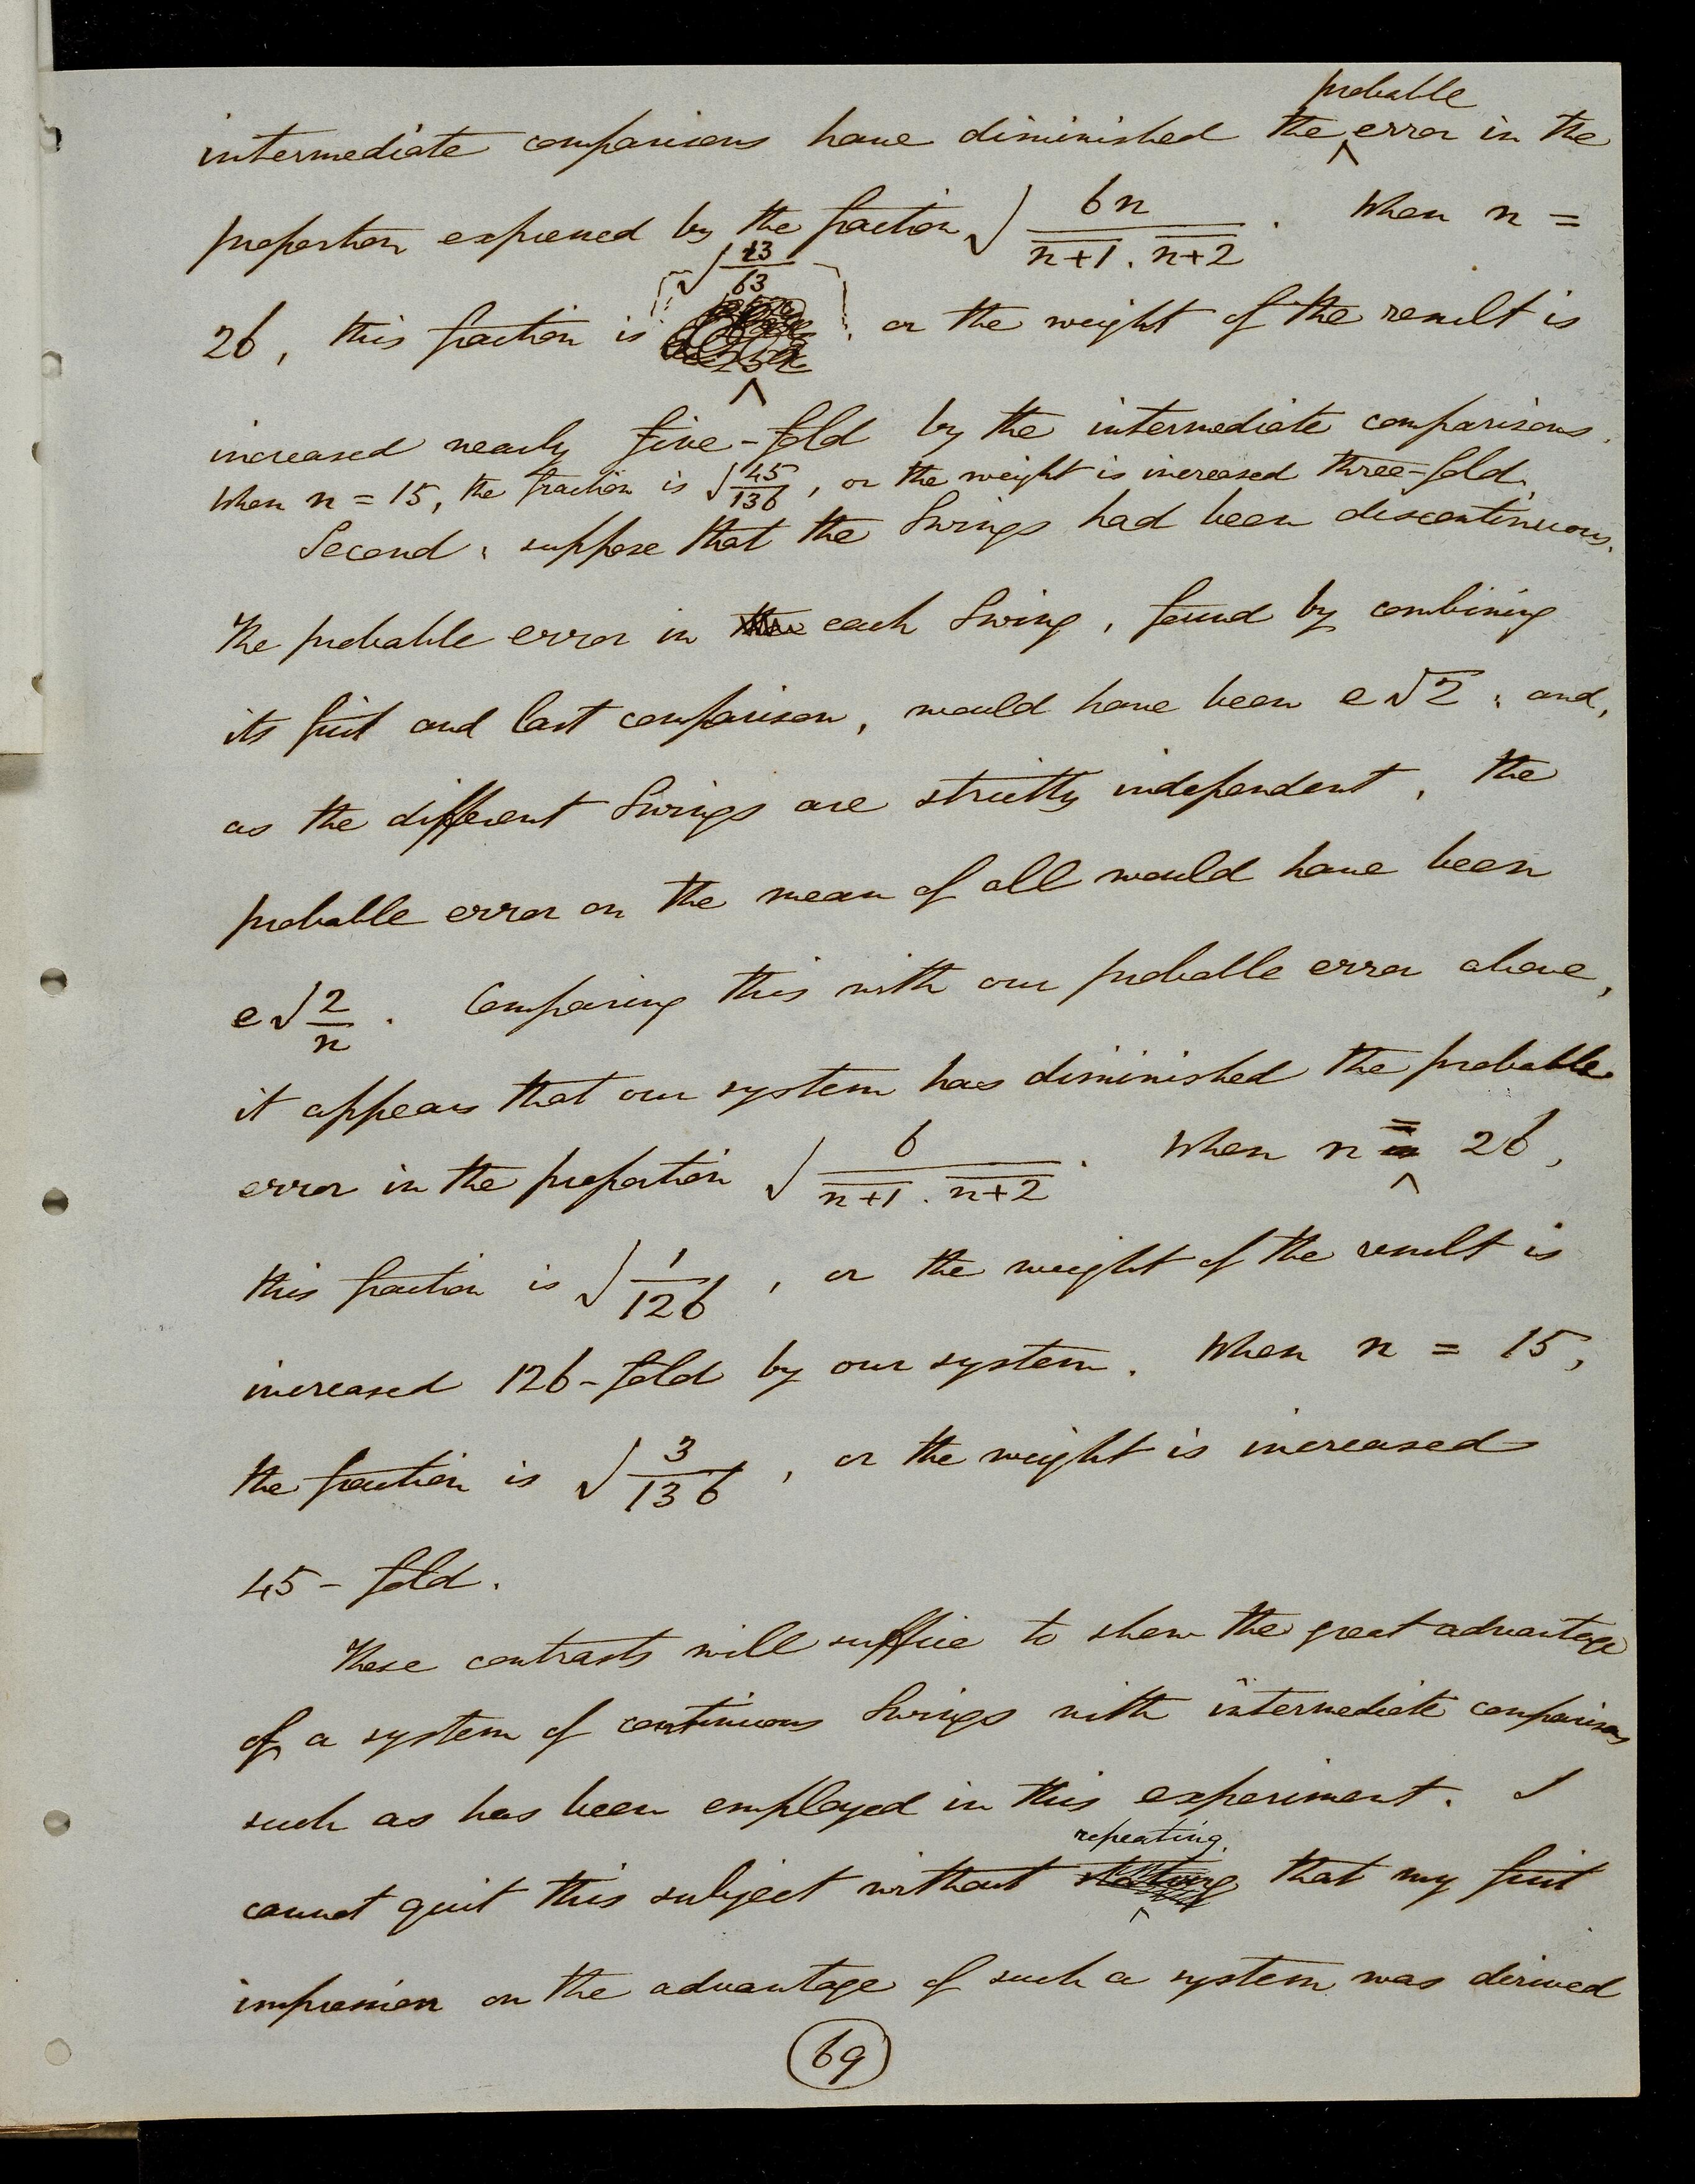 probable
intermediate comparisons have diminished the ^ error in the
proportion expressed by the fraction √ 6n / n+1 . n+2 . When n =
√ 13 / 63
26, this fraction is ^ , or the weight of the result is
increased nearly five-fold by the intermediate comparisons.
When n = 15, the fraction is √ 45 / 136 , or the weight is increased three-fold.
Second, suppose that the Swings had been discontinuous.
The probable error in the each Swing, found by combining
its first and last comparison, would have been e √2 ; and,
as the different Swings are strictly independent, the
probable error on the mean of all would have been
e √ 2 / n . Comparing this with our probable error above,
it appears that our system has diminished the probable
error in the proportion √ 6 / n+1 . n+2 . When n = 26,
this fraction is √ 1 / 126 , or the weight of the result is
increased 126-fold by our system. When n = 15,
the fraction is √ 3 / 136 , or the weight is increased
45-fold.
These contrasts will suffice to shew the great advantage
of a system of continuous Swings with intermediate comparisons
such as has been employed in this experiment. I
repeating
cannot quit this subject without stating ^ that my first
impression on the advantage of such a system was derived
69